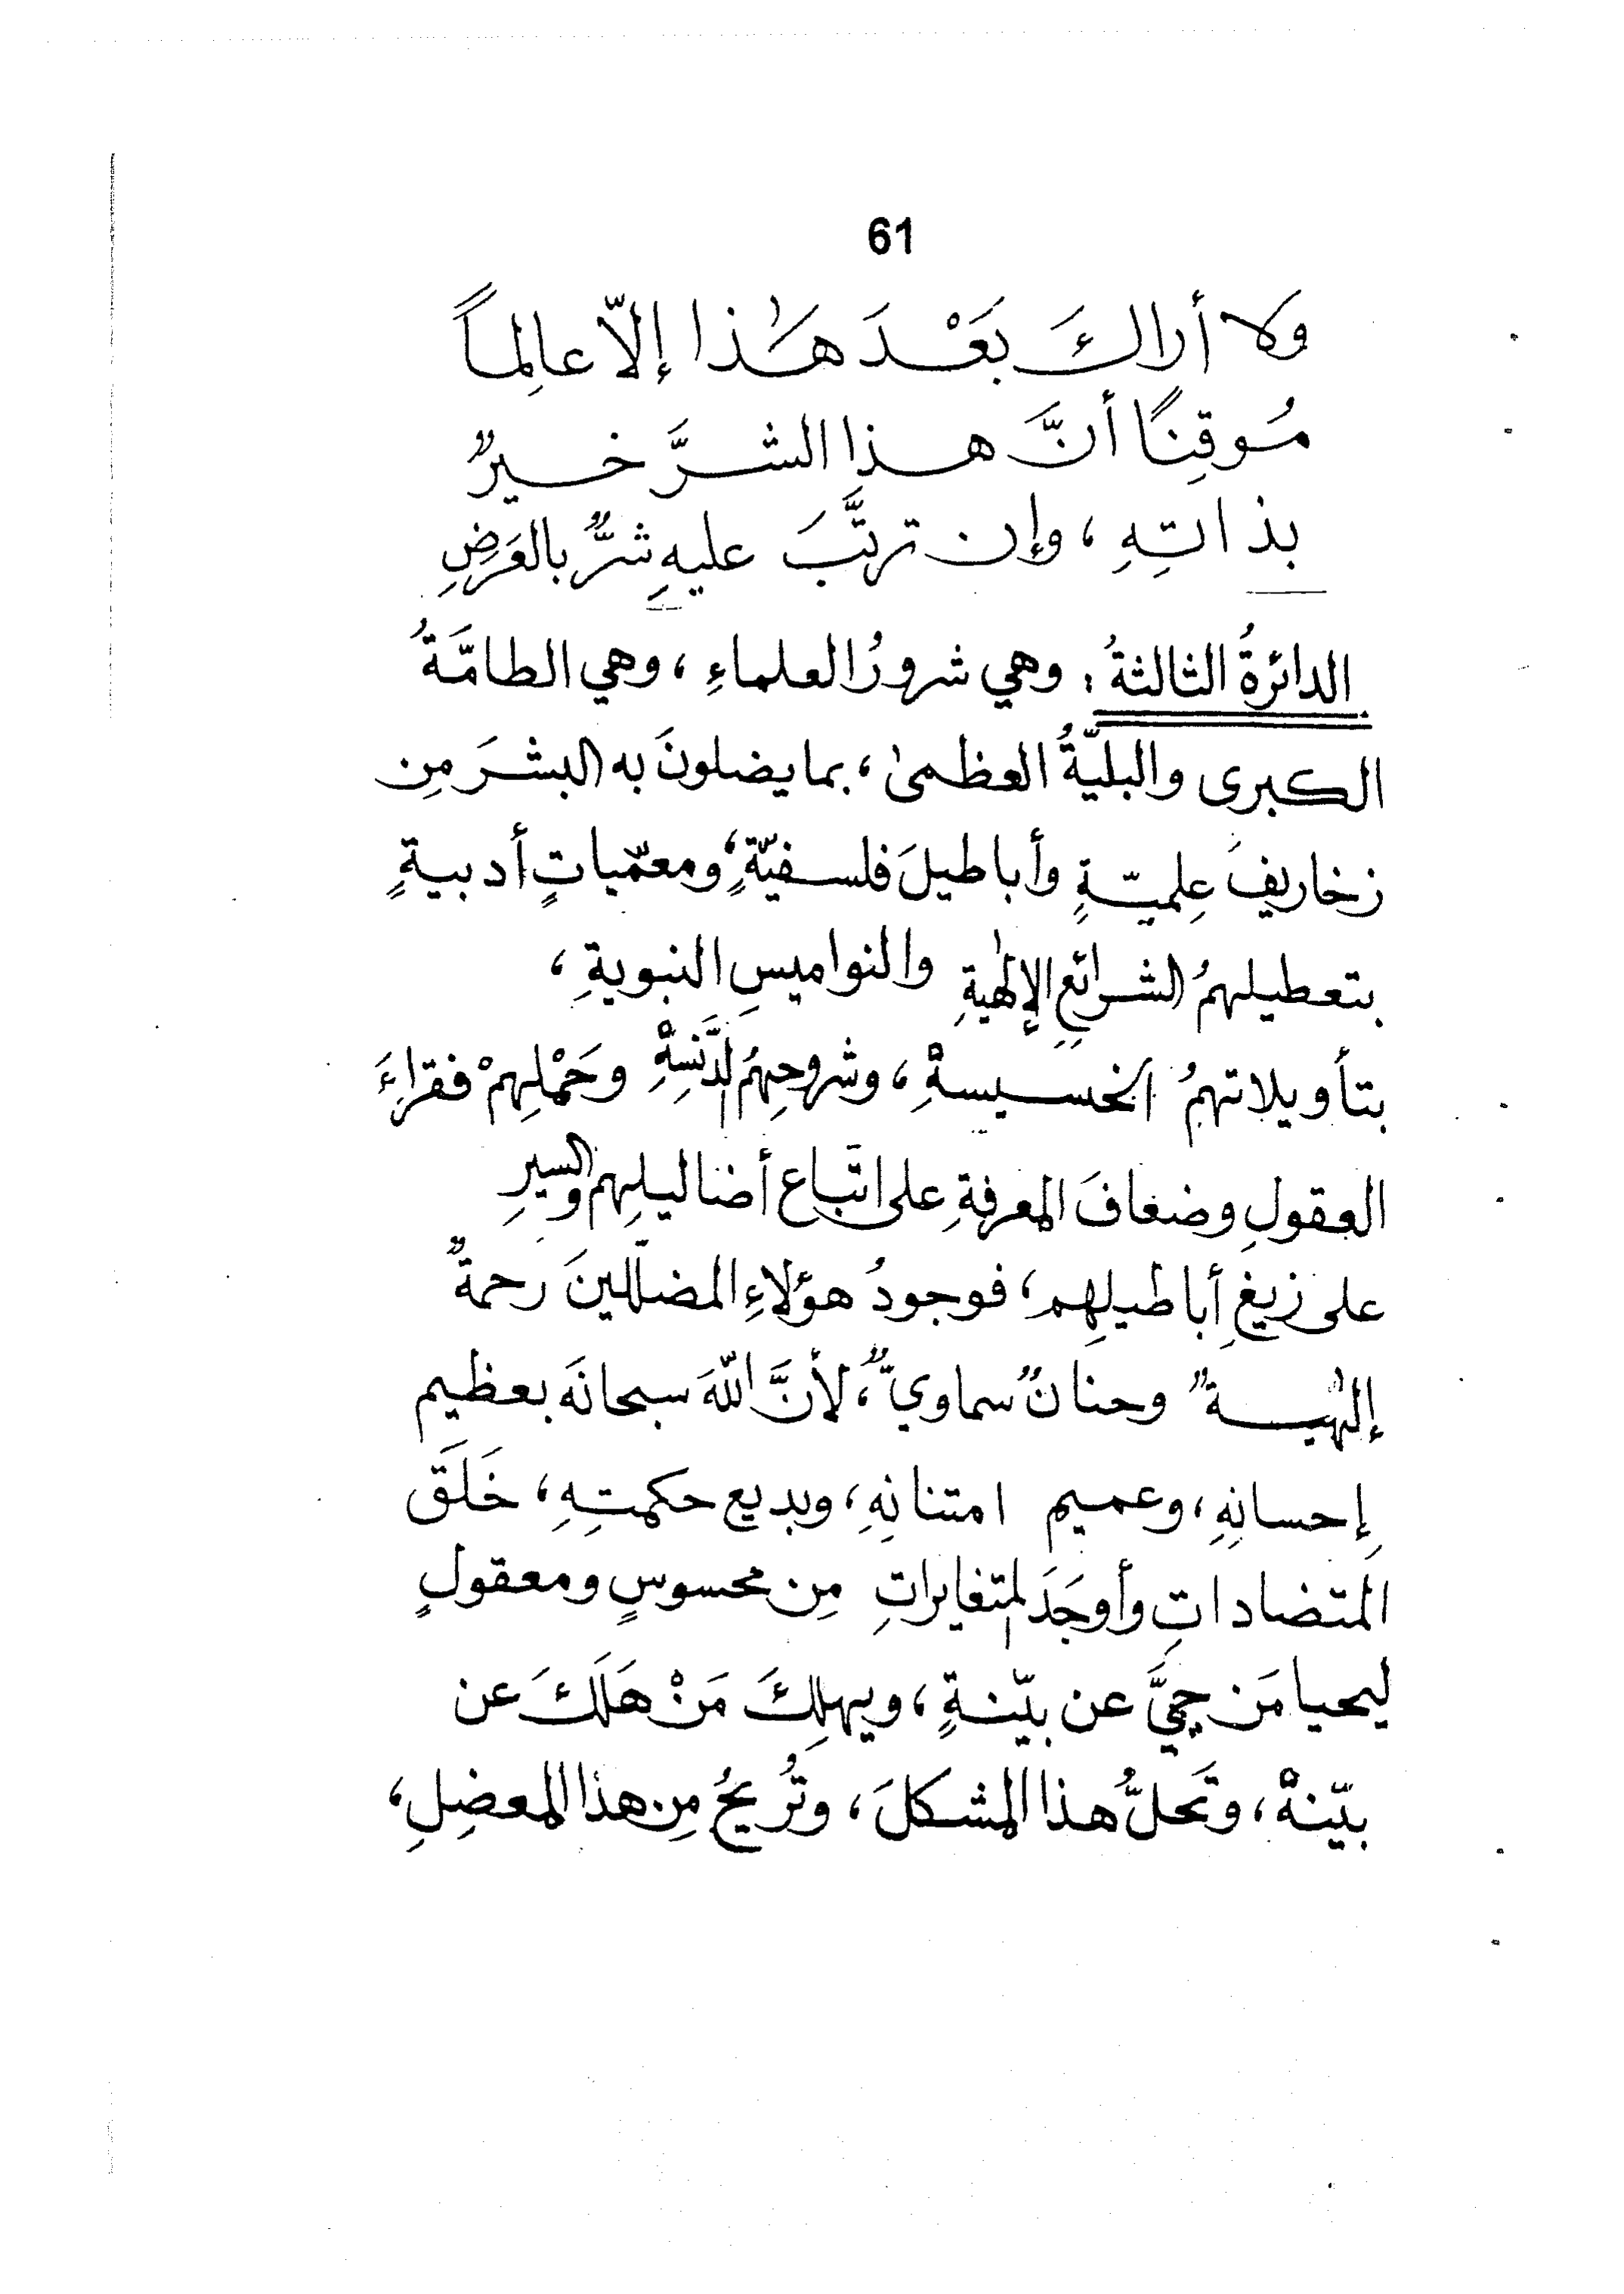 61
ولا أراكَ بَعْدَ هٰذا إلّا عالِماً
مُوقِنًا أنَّ هذا الشرَّ خيرٌ
بذاتِهِ ، وإن ترتَّبَ عليهِ شرٌّ بالعَرَضِ
الدائرةُ الثالثةُ : وهي شرورُ العلماءِ ، وهي الطامَّةُ
الكبرى والبليّةُ العظمىٰ ، بما يضلونَ به البشرَ مِن
زخاريفَ عِلميّةٍ وأباطيلَ فلسفيّةٍ ، ومعمّياتٍ أدبيةٍ
بتعطيلهمُ الشرائعَ الإلٰهيةِ والنواميسِ النبويةِ ،
بتأويلاتهمُ الخسيسةْ ، وشروحِهمُ الدَّنسةْ وحَمْلِهِمْ فقراءَ
العقولِ وضعافَ المعرفةِ على اتّباع أضاليلِهم والسيرِ
على زيغِ أباطيلِهِم ، فوجودُ هؤلاءِ المضللينَ رحمةٌ
إلٰهيةٌ وحنانٌ سماويٌّ ، لأنَّ اللّهَ سبحانَه بعظيم
إحسانِهِ ، وعميم امتنانِهِ ، وبديع حكمتِهِ ، خَلَقَ
المتضاداتِ وأوجَدَ المتغايراتِ مِن محسوسٍ ومعقولٍ
ليحيا مَن حيَّ عن بيّنةٍ ، ويهلِكَ مَنْ هَلَكَ عن
بيّنةْ ، وتَحلُّ هذا المشكلَ ، وتُريحُ مِن هذا المعضِلِ ،